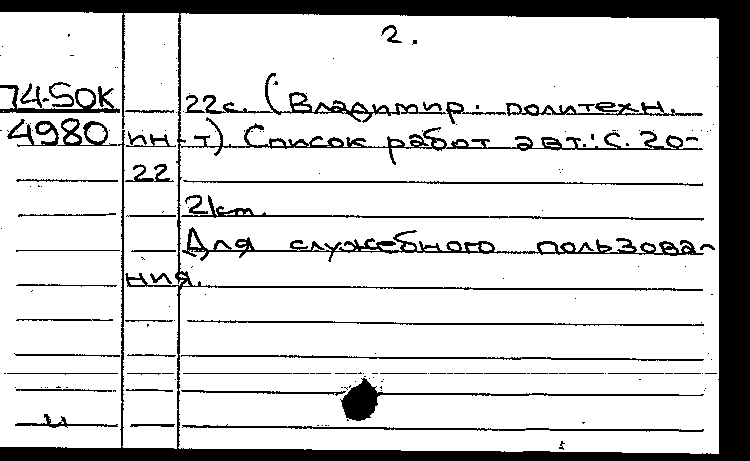 2.
74-50K 22с. (Владимир. политехн.
4980 ин-т). Список работ авт.: С. 20-
22
21см.
Для служебного пользова-
ния.